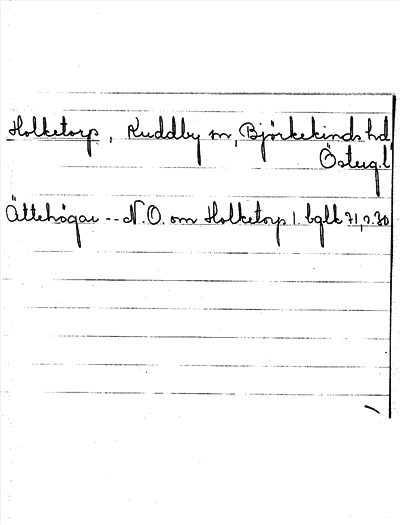 Holketorp, Kuddby sn, Björkekinds hd
Östergl
Ättehögar -- N.O. om Holketorp l. bglb 71, s. 30